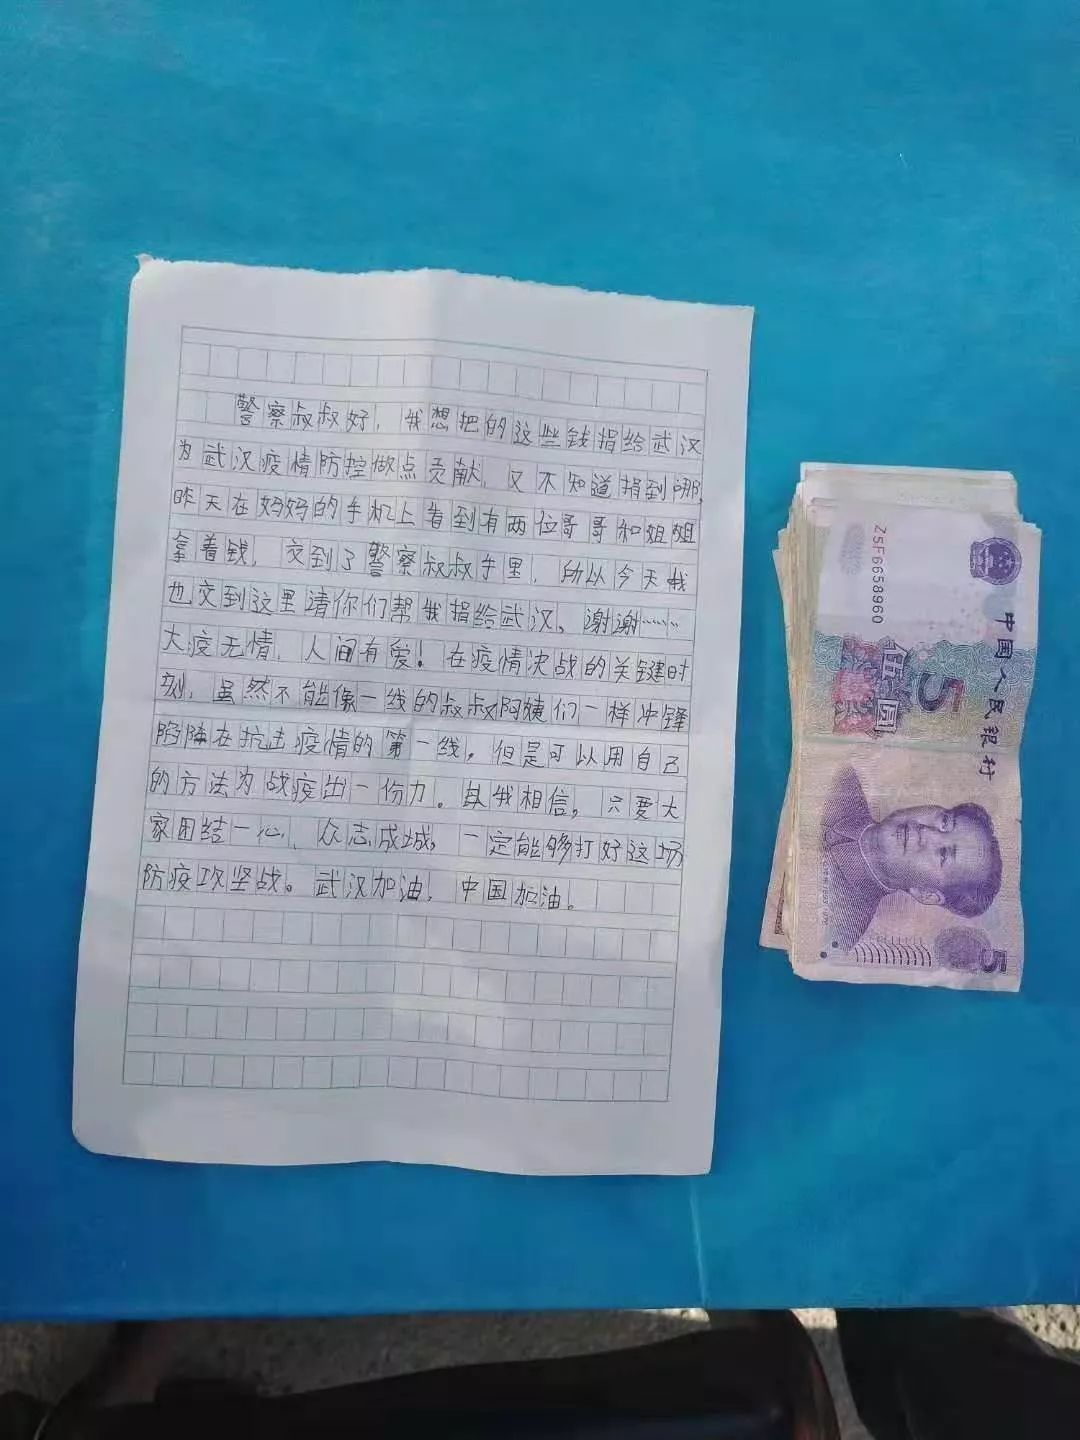 警察叔叔好，我想把的这些钱捐给武汉
为武汉疫情防控做点贡献，又不知道捐到哪，
昨天在妈妈的手机上看到有两位哥哥和姐姐
拿着钱，交到了警察叔叔手里，所以今天我
也交到这里请你们帮我捐给武汉。谢谢……
大疫无情，人间有爱！在疫情决战的关键时
刻，虽然不能像一线的叔叔阿姨们一样冲锋
陷阵在抗击疫情的第一线。但是可以用自己
的方法为战疫出一份力。我相信，只要大
家团结一心，众志成城，一定能够打好这场
防疫攻坚战。武汉加油，中国加油。
Z5F6658960
中国人民银行
5
伍圆
5